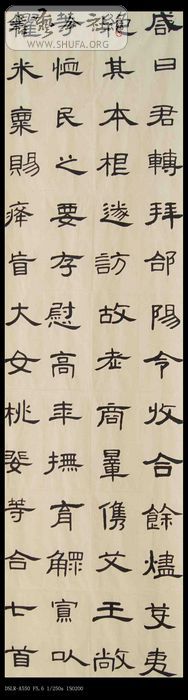 咸曰君轉拜郃陽令收合餘燼芟夷
絕其本根遂訪故老商量儁艾王敞
等恤民之要存慰高年撫育鰥寡以
糴米粟賜癃盲大女桃婓等合七首
WWW.SHUFA.ORG
DSLR-A550 F5.6 1/250s ISO200